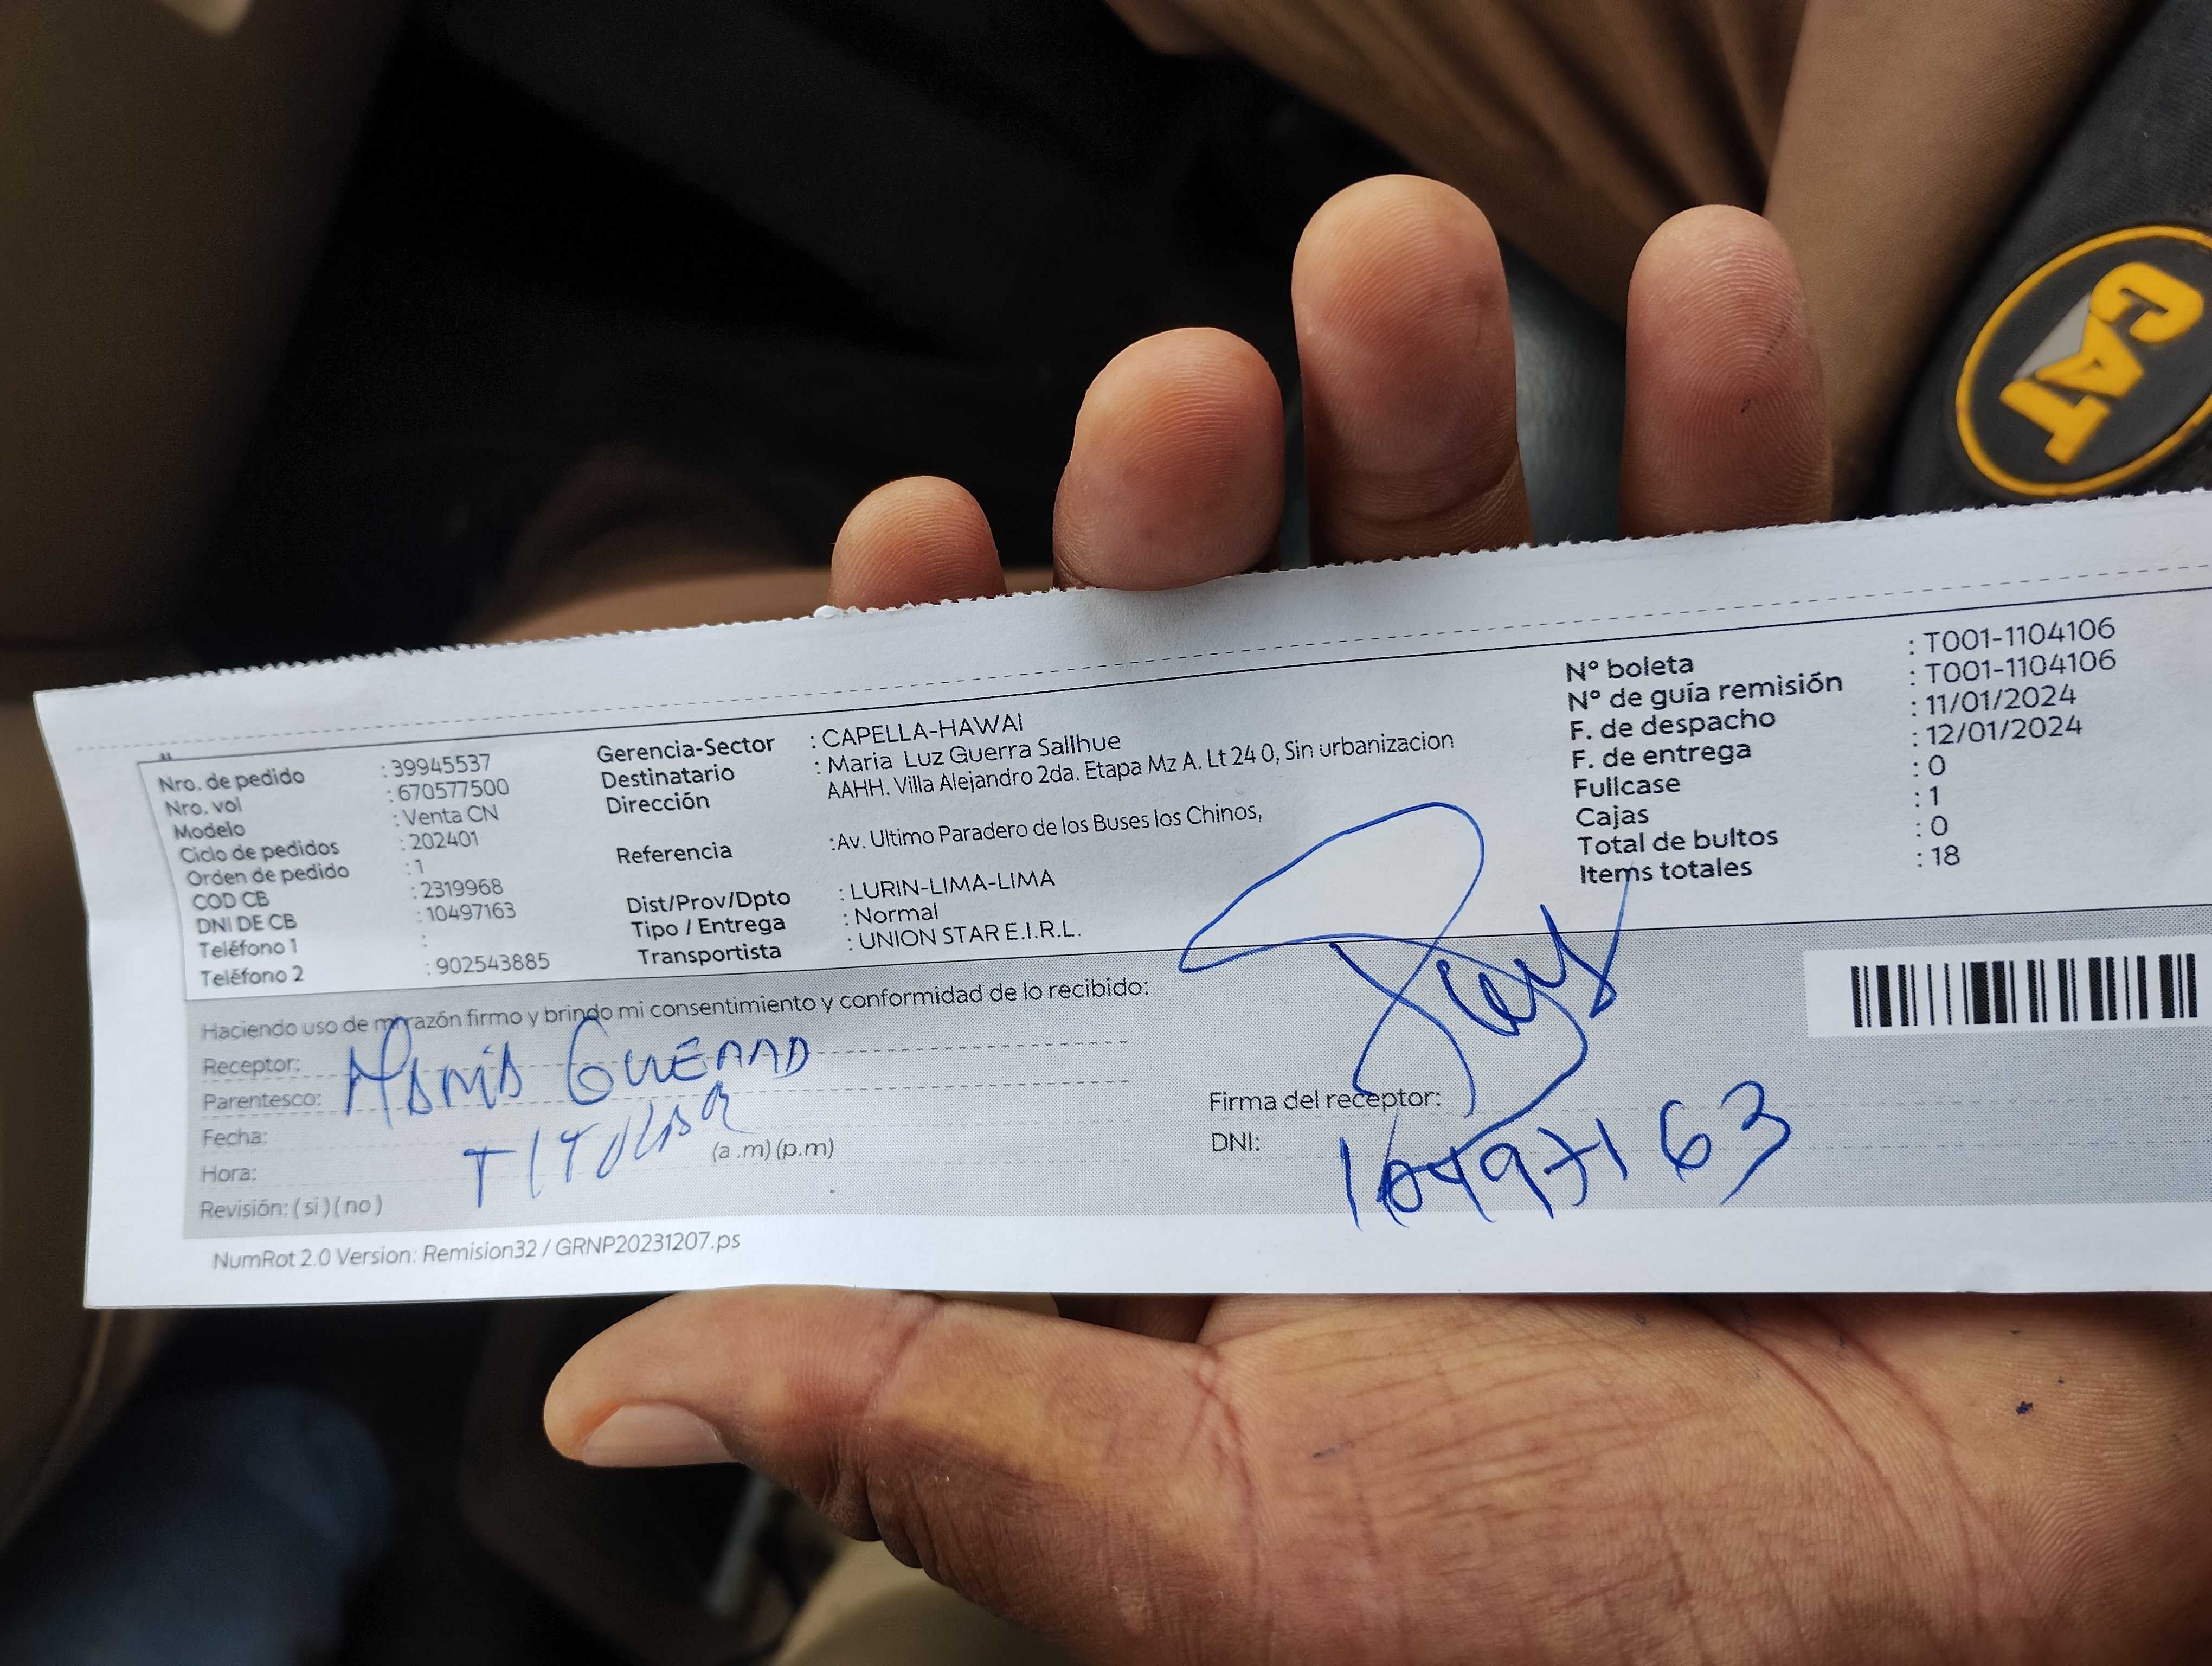 CAT
Nro. de pedido : 39945537
Nro. vol : 670577500
Modelo : Venta CN
Ciclo de pedidos : 202401
Orden de pedido : 1
COD CB : 2319968
DNI DE CB : 10497163
Teléfono 1 :
Teléfono 2 : 902543885
Gerencia-Sector : CAPELLA-HAWAI
Destinatario : Maria Luz Guerra Sallhue
Dirección AAHH. Villa Alejandro 2da. Etapa Mz A. Lt 24 0, Sin urbanizacion
Referencia :Av. Ultimo Paradero de los Buses los Chinos,
Dist/Prov/Dpto : LURIN-LIMA-LIMA
Tipo / Entrega : Normal
Transportista : UNION STAR E.I.R.L.
N° boleta : T001-1104106
N° de guía remisión : T001-1104106
F. de despacho : 11/01/2024
F. de entrega : 12/01/2024
Fullcase : 0
Cajas : 1
Total de bultos : 0
Items totales : 18
Haciendo uso de mi razón firmo y brindo mi consentimiento y conformidad de lo recibido:
Receptor:
Parentesco: TITULAR
Fecha:
Hora: (a .m) (p.m)
Revisión: ( si ) ( no )
Firma del receptor:
DNI: 10497163
NumRot 2.0 Version: Remision32 / GRNP20231207.ps